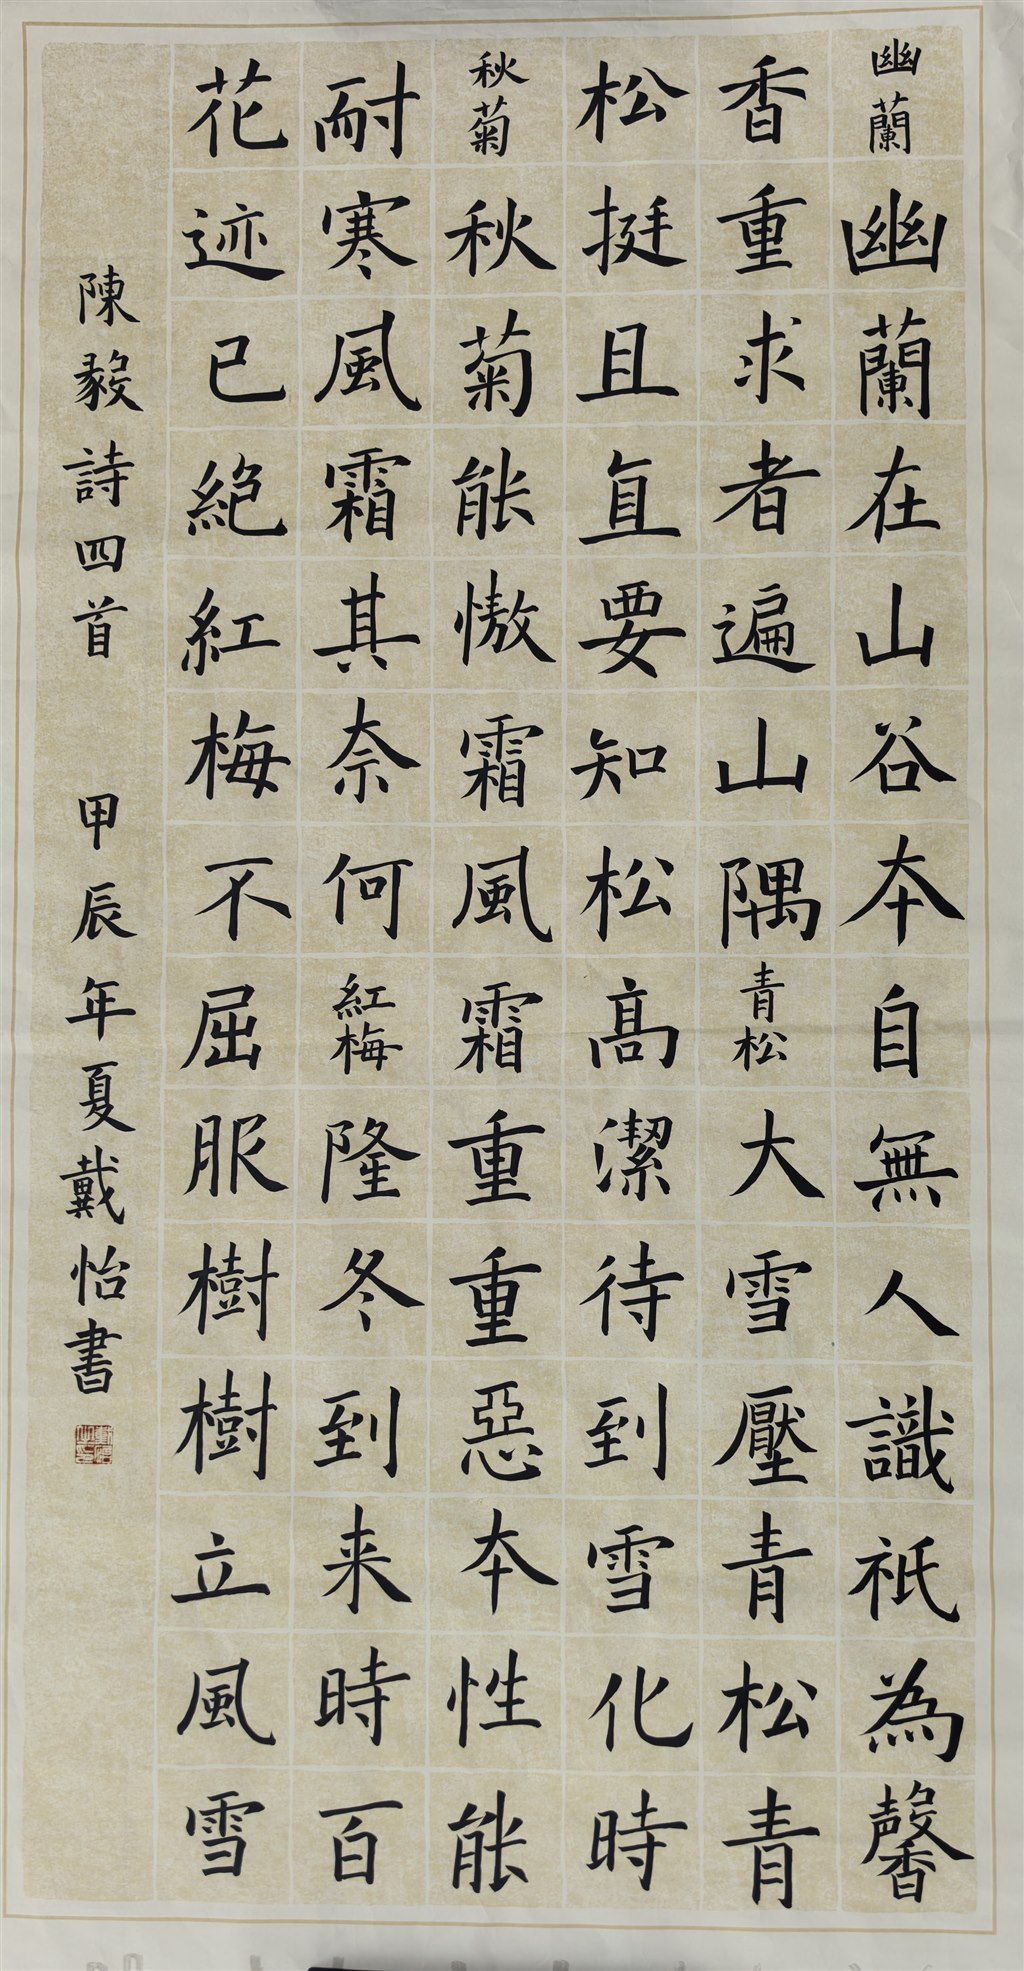 幽蘭幽蘭在山谷本自無人識祇為馨
香重求者遍山隅青松大雪壓青松青
松挺且直要知松高潔待到雪化時
秋菊秋菊能慠霜風霜重重惡本性能
耐寒風霜其奈何紅梅隆冬到来時百
花迹已絕紅梅不屈服樹樹立風雪
陳毅詩四首 甲辰年夏戴怡書